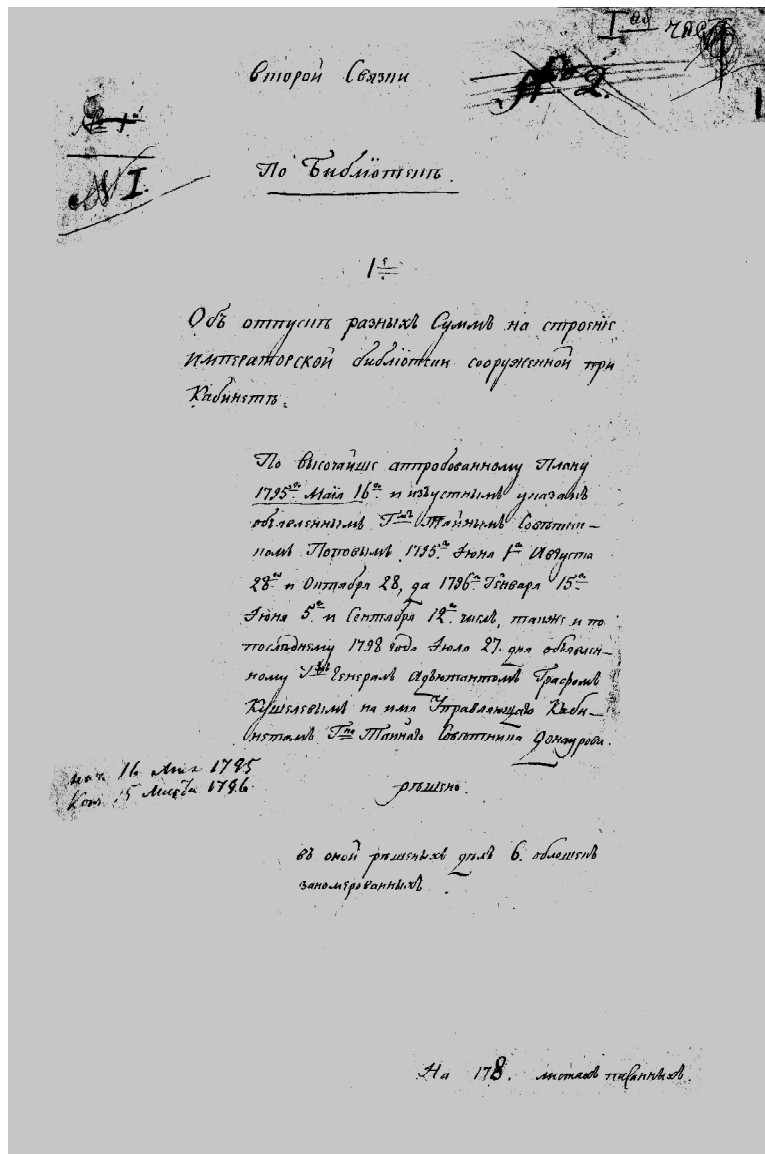 Iая часть
второй Связки
№ 2.
№ 1й
№ I.
По Библіотекѣ.
1е
Объ отпускѣ разныхъ Суммъ на строеніе
Императорской библіотеки сооруженной при
Кабинетѣ.
По высочайше аппробованному Плану
1795го Маія 16го и изъустнымъ указамъ
объявленнымъ Гмъ Тайнымъ Совѣтни-
комъ Поповымъ 1795го Іюня 1го Августа
28го и Октября 28, да 1796го Генваря 15го
Іюня 5го и Сентября 12го числъ, также и по
послѣднему 1798 года Іюля 27. дня объявлен-
ному Генералъ Адъютантомъ Графомъ
Кушелевымъ на имя Управляющаго Каби-
нетомъ Гна Тайнаго Совѣтника Донаурова.
нач. 16 Мая 1795
Кон. 5 1796
рѣшено.
въ оной рѣшеныхъ дѣлъ 6. обложекъ
заномерованныхъ
На 178. листахъ писанныхъ.